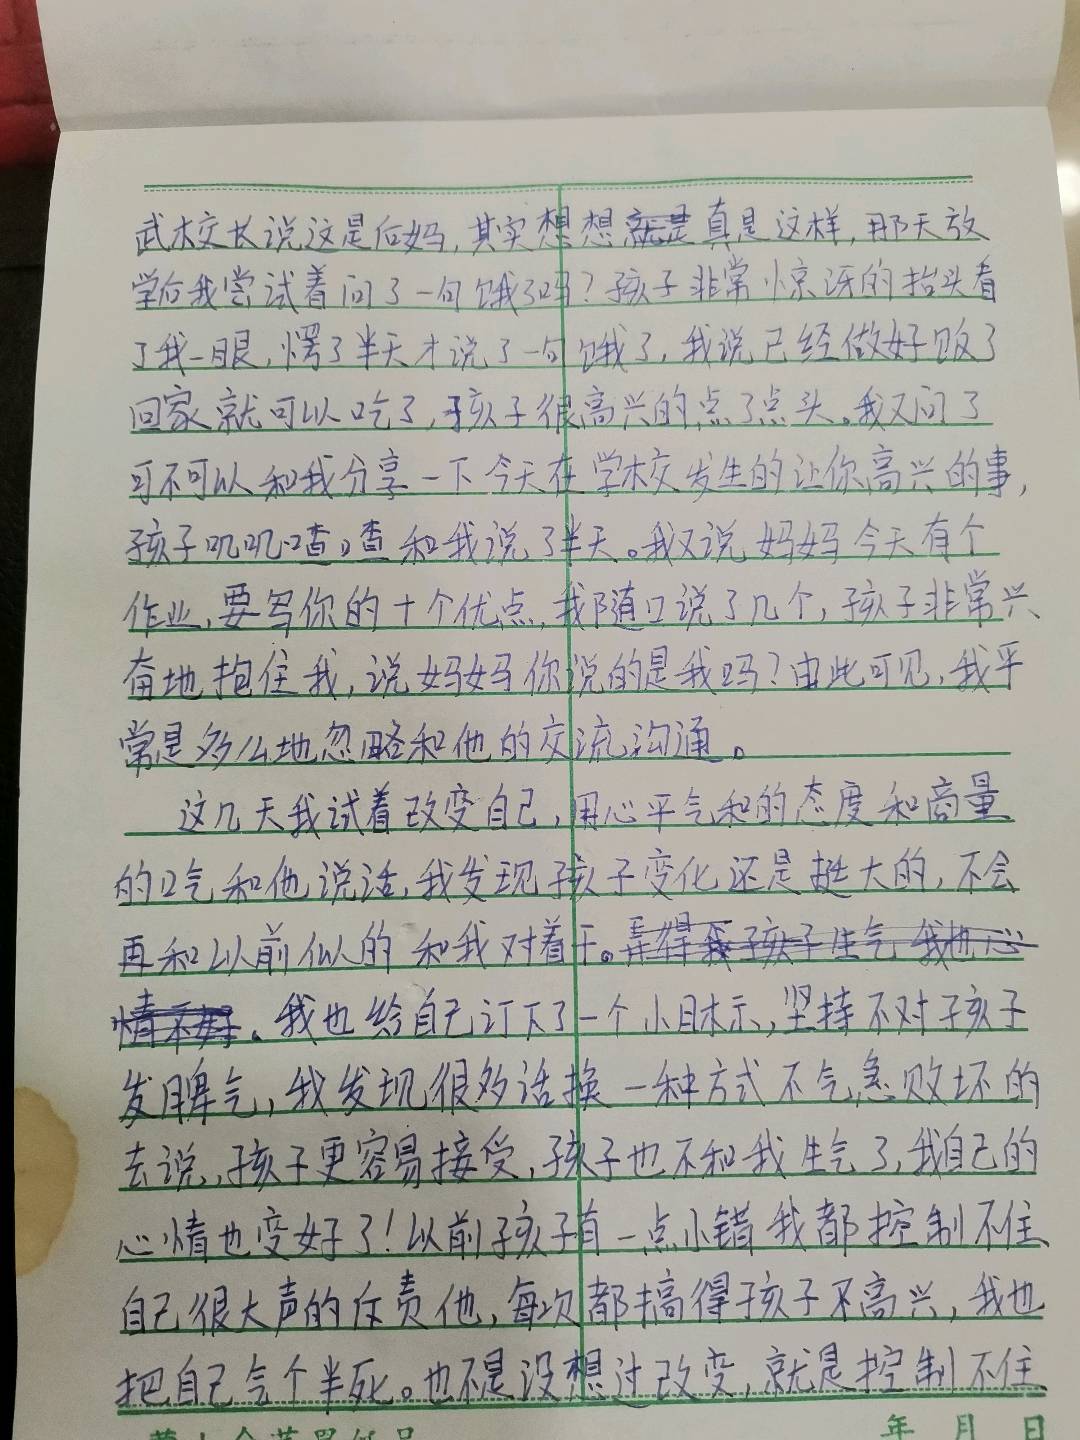 武校长说这是后妈,其实想想就是真是这样,那天放
学后我尝试着问了一句饿了吗?孩子非常惊讶的抬头看
了我一眼,愣了半天才说了一句饿了,我说已经做好饭了
回家就可以吃了,孩子很高兴的点了点头。我又问了
可不可以和我分享一下今天在学校发生的让你高兴的事,
孩子叽叽喳喳和我说了半天。我又说妈妈今天有个
作业,要写你的十个优点,我随口说了几个,孩子非常兴
奋地抱住我,说妈妈你说的是我吗?由此可见,我平
常是多么地忽略和他的交流沟通。
这几天我试着改变自己,用心平气和的态度和商量
的口气和他说话,我发现孩子变化还是挺大的,不会
再和以前似的和我对着干。弄得孩子生气我也心
情不好。我也给自己订下了一个小目标,坚持不对孩子
发脾气,我发现很多话换一种方式不气急败坏的
去说,孩子更容易接受,孩子也不和我生气了,我自己的
心情也变好了!以前孩子有一点小错我都控制不住
自己很大声的斥责他,每次都搞得孩子不高兴,我也
把自己气个半死。也不是没想过改变,就是控制不住
年 月 日